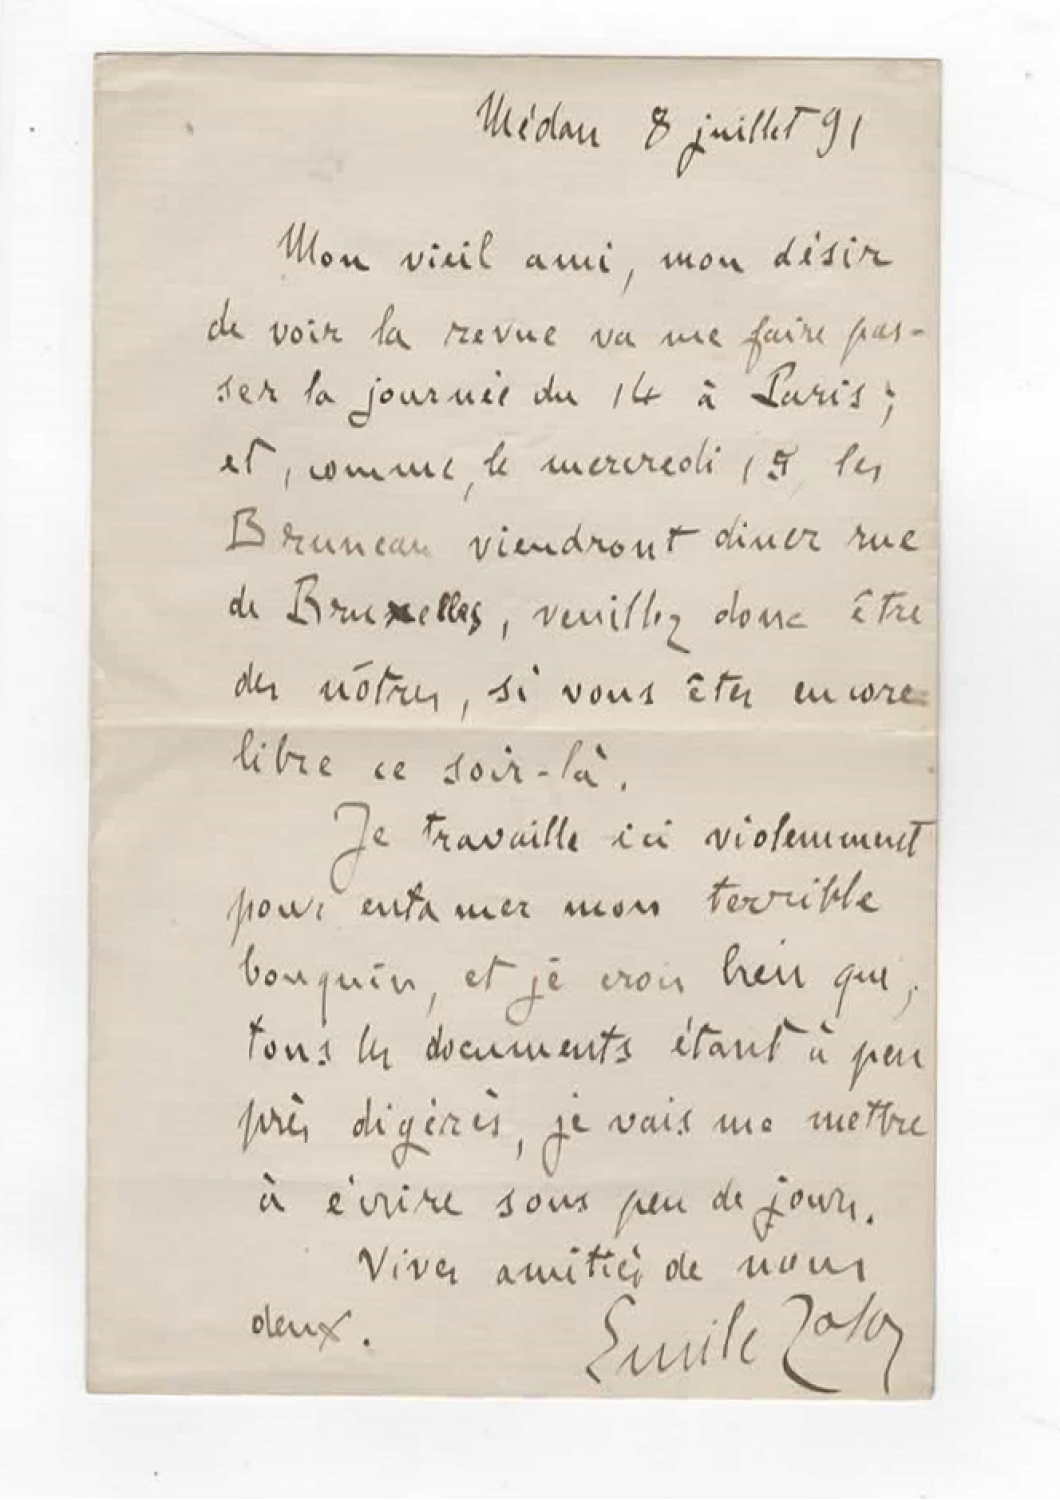 Médan 8 juillet 91
Mon vieil ami, mon désir
de voir la revue va me faire pas-
ser la journée du 14 à Paris;
et, comme, le mercredi 15, les
Bruneau viendront diner rue
de Bruxelles, veuillez donc être
des nôtres, si vous êtes encore
libre ce soir-là.
Je travaille ici violemment
pour entamer mon terrible
bouquin, et je crois bien que,
tous les documents étant à peu
près digérés, je vais me mettre
à écrire sous peu de jours.
Vives amitiés de nous
deux.
Emile Zola